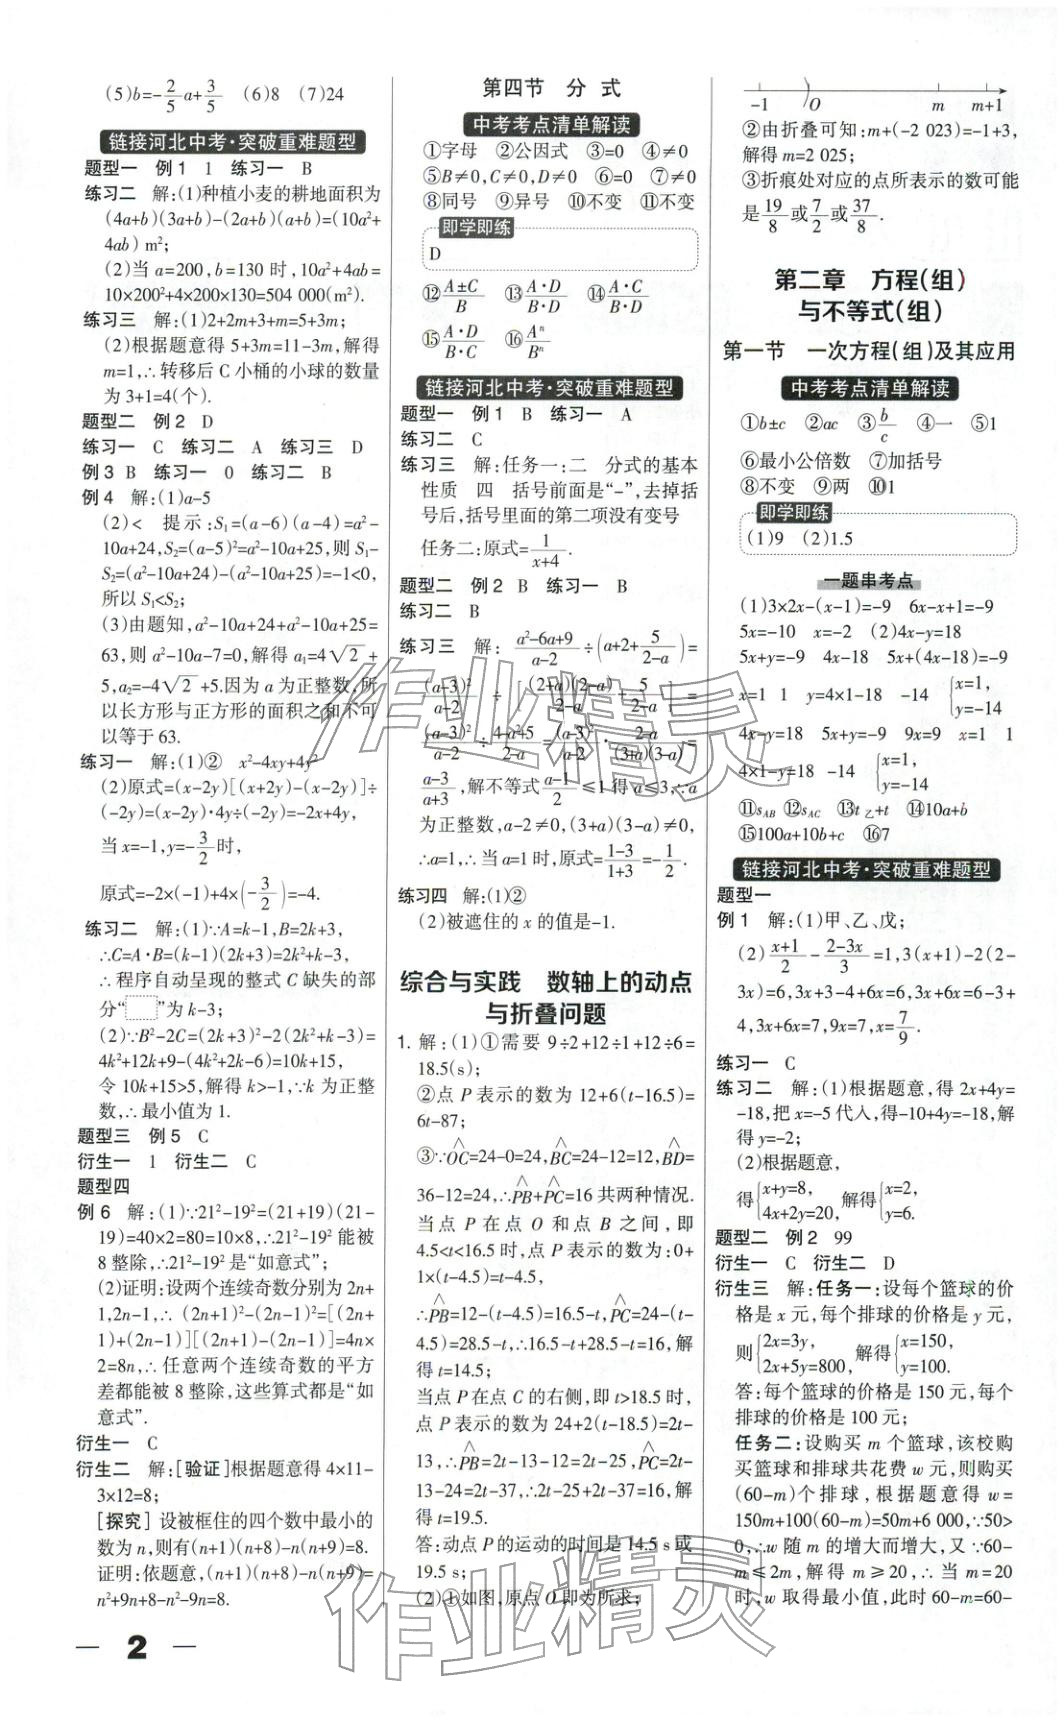 (5)b=-2/5a+3/5 (6)8 (7)24
链接河北中考·突破重难题型
题型一 例1 1 练习一 B
练习二 解:(1)种植小麦的耕地面积为
(4a+b)(3a+b)-(2a+b)(a+b)=(10a²+
4ab) m²;
(2)当 a=200,b=130 时,10a²+4ab=
10×200²+4×200×130=504 000(m²).
练习三 解:(1)2+2m+3+m=5+3m;
(2)根据题意得 5+3m=11-3m,解得
m=1,∴转移后 C 小桶的小球的数量
为 3+1=4(个).
题型二 例2 D
练习一 C 练习二 A 练习三 D
例3 B 练习一 0 练习二 B
例4 解:(1)a-5
(2)< 提示:S₁=(a-6)(a-4)=a²-
10a+24,S₂=(a-5)²=a²-10a+25,则 S₁-
S₂=(a²-10a+24)-(a²-10a+25)=-1<0,
所以 S₁<S₂;
(3)由题知,a²-10a+24+a²-10a+25=
63,则 a²-10a-7=0,解得 a₁=4√2+
5,a₂=-4√2+5.因为 a 为正整数,所
以长方形与正方形的面积之和不可
以等于 63.
练习一 解:(1)② x²-4xy+4y²
(2)原式=(x-2y)[(x+2y)-(x-2y)]÷
(-2y)=(x-2y)·4y÷(-2y)=-2x+4y,
当 x=-1,y=-3/2时,
原式=-2×(-1)+4×(-3/2)=-4.
练习二 解:(1)∵A=k-1,B=2k+3,
∴C=A·B=(k-1)(2k+3)=2k²+k-3,
∴程序自动呈现的整式 C 缺失的部
分“ ”为 k-3;
(2)∵B²-2C=(2k+3)²-2(2k²+k-3)=
4k²+12k+9-(4k²+2k-6)=10k+15,
令 10k+15>5,解得 k>-1,∵k 为正整
数,∴最小值为 1.
题型三 例5 C
衍生一 1 衍生二 C
题型四
例6 解:(1)∵21²-19²=(21+19)(21-
19)=40×2=80=10×8,∴21²-19² 能被
8 整除,∴21²-19² 是“如意式”;
(2)证明:设两个连续奇数分别为 2n+
1,2n-1,∴ (2n+1)²-(2n-1)²=[(2n+
1)+(2n-1)][(2n+1)-(2n-1)]=4n×
2=8n,∴任意两个连续奇数的平方
差都能被 8 整除,这些算式都是“如
意式”.
衍生一 C
衍生二 解:[验证]根据题意得 4×11-
3×12=8;
[探究] 设被框住的四个数中最小的
数为 n,则有(n+1)(n+8)-n(n+9)=8.
证明:依题意,(n+1)(n+8)-n(n+9)=
n²+9n+8-n²-9n=8.
第四节 分 式
中考考点清单解读
①字母 ②公因式 ③=0 ④≠0
⑤B≠0,C≠0,D≠0 ⑥=0 ⑦≠0
⑧同号 ⑨异号 ⑩不变 ⑪不变
即学即练
D
⑫(A±C)/B ⑬(A·D)/(B·D) ⑭(A·C)/(B·D)
⑮(A·D)/(B·C) ⑯Aⁿ/Bⁿ
链接河北中考·突破重难题型
题型一 例1 B 练习一 A
练习二 C
练习三 解:任务一:二 分式的基本
性质 四 括号前面是“-”,去掉括
号后,括号里面的第二项没有变号
任务二:原式=1/(x+4).
题型二 例2 B 练习一 B
练习二 B
练习三 解:(a²-6a+9)/(a-2)÷(a+2+5/(2-a))=
(a-3)²/(a-2)÷[(2+a)(2-a)/(2-a)+5/(2-a)]=
(a-3)²/(a-2)÷(4-a²+5)/(2-a)=(a-3)²/(a-2)·(2-a)/((3+a)(3-a))=
(a-3)/(a+3),解不等式(a-1)/2≤1,得 a≤3,∴a
为正整数,a-2≠0,(3+a)(3-a)≠0,
∴a=1,∴当 a=1 时,原式=(1-3)/(1+3)=-1/2.
练习四 解:(1)②
(2)被遮住的 x 的值是-1.
综合与实践 数轴上的动点
与折叠问题
1. 解:(1)①需要 9÷2+12÷1+12÷6=
18.5(s);
②点 P 表示的数为 12+6(t-16.5)=
6t-87;
③∵OC=24-0=24,BC=24-12=12,BD=
36-12=24,∴PB+PC=16 共两种情况.
当点 P 在点 O 和点 B 之间,即
4.5<t<16.5 时,点 P 表示的数为:0+
1×(t-4.5)=t-4.5,
∴PB=12-(t-4.5)=16.5-t,PC=24-(t-
4.5)=28.5-t,∴16.5-t+28.5-t=16,解
得 t=14.5;
当点 P 在点 C 的右侧,即 t>18.5 时,
点 P 表示的数为 24+2(t-18.5)=2t-
13,∴PB=2t-13-12=2t-25,PC=2t-
13-24=2t-37,∴2t-25+2t-37=16,解
得 t=19.5.
答:动点 P 的运动的时间是 14.5 s 或
19.5 s;
(2)①如图,原点 O 即为所求;
-1 O m m+1
②由折叠可知:m+(-2 023)=-1+3,
解得 m=2 025;
③折痕处对应的点所表示的数可能
是19/8或7/2或37/8.
第二章 方程(组)
与不等式(组)
第一节 一次方程(组)及其应用
中考考点清单解读
①b±c ②ac ③b/c ④一 ⑤1
⑥最小公倍数 ⑦加括号
⑧不变 ⑨两 ⑩1
即学即练
(1)9 (2)1.5
一题串考点
(1)3×2x-(x-1)=-9 6x-x+1=-9
5x=-10 x=-2 (2)4x-y=18
5x+y=-9 4x-18 5x+(4x-18)=-9
x=1 1 y=4×1-18 -14 {x=1, y=-14
4x-y=18 5x+y=-9 9x=9 x=1 1
4×1-y=18 -14 {x=1, y=-14
⑪s_AB ⑫s_AC ⑬t_乙+t ⑭10a+b
⑮100a+10b+c ⑯7
链接河北中考·突破重难题型
题型一
例1 解:(1)甲、乙、戊;
(2)(x+1)/2-(2-3x)/3=1,3(x+1)-2(2-
3x)=6,3x+3-4+6x=6,3x+6x=6-3+
4,3x+6x=7,9x=7,x=7/9.
练习一 C
练习二 解:(1)根据题意,得 2x+4y=
-18,把 x=-5 代入,得-10+4y=-18,解
得 y=-2;
(2)根据题意,
得{x+y=8, 4x+2y=20,解得{x=2, y=6.
题型二 例2 99
衍生一 C 衍生二 D
衍生三 解:任务一:设每个篮球的价
格是 x 元,每个排球的价格是 y 元,
则{2x=3y, 2x+5y=800,解得{x=150, y=100.
答:每个篮球的价格是 150 元,每个
排球的价格是 100 元;
任务二:设购买 m 个篮球,该校购
买篮球和排球共花费 w 元,则购买
(60-m)个排球,根据题意得 w=
150m+100(60-m)=50m+6 000,∵50>
0,∴w 随 m 的增大而增大,又∵60-
m≤2m,解得 m≥20,∴当 m=20
时,w 取得最小值,此时 60-m=60-
— 2 —
作业精灵
作业精灵